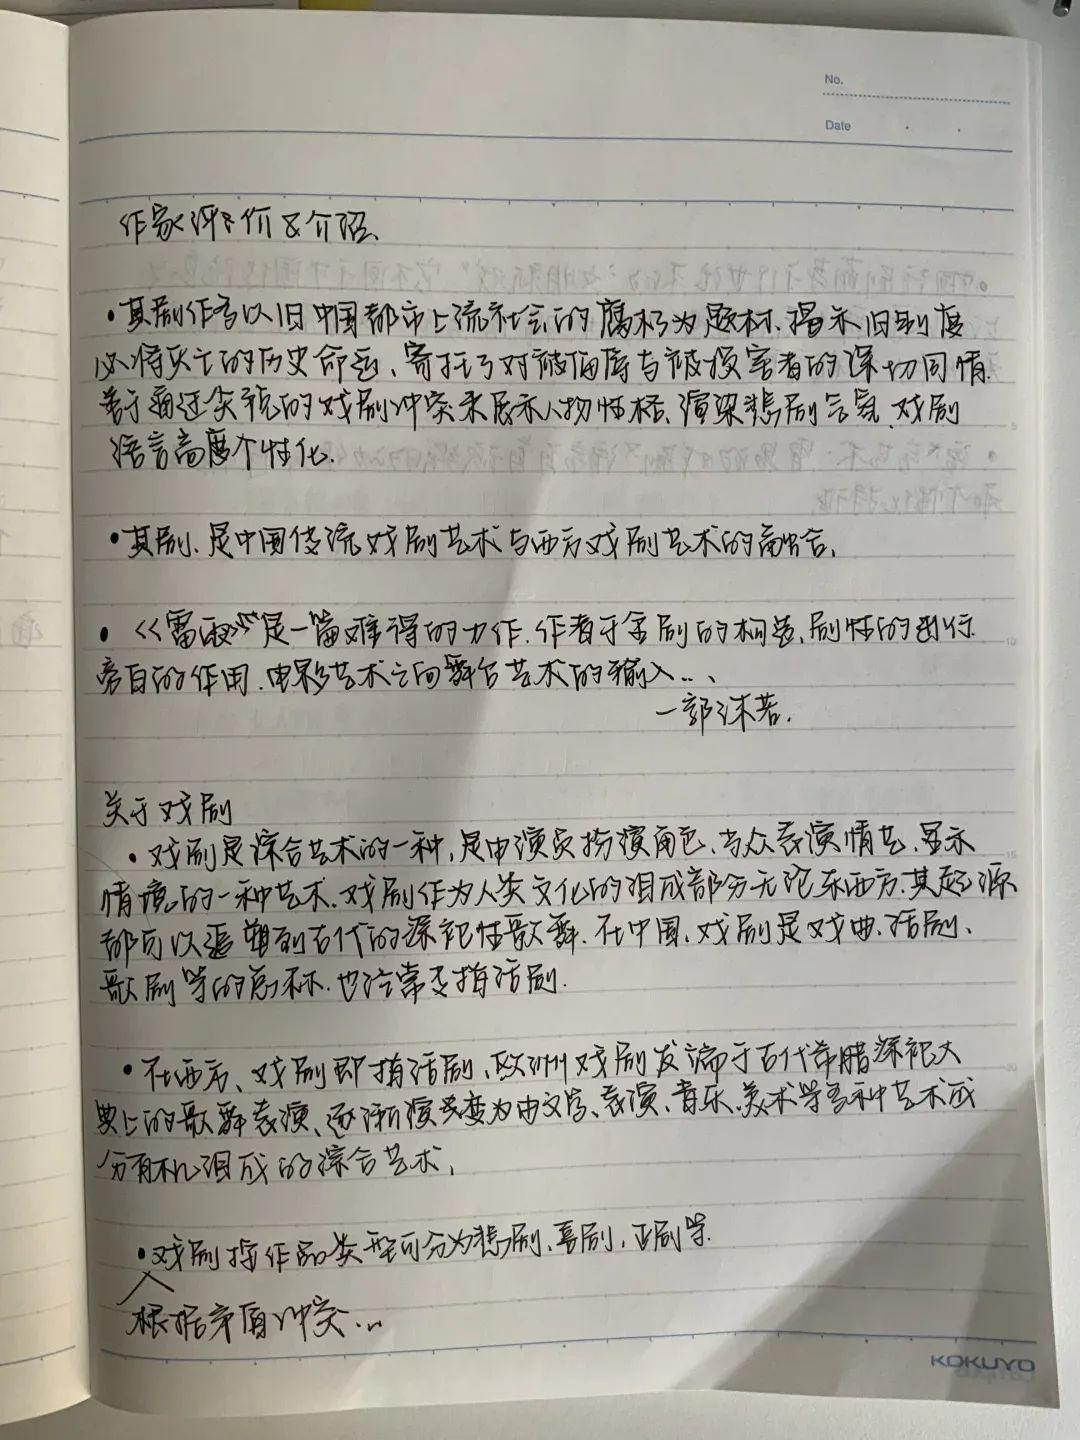 No.
Date
作家评价&介绍、
•其剧作多以旧中国都市上流社会的腐朽为题材、揭示旧制度
必将灭亡的历史命运、寄托了对被侮辱与被损害者的深切同情.
善于通过尖锐的戏剧冲突来展示人物性格、渲染悲剧气氛、戏剧
语言高度个性化.
•其剧、是中国传统戏剧艺术与西方戏剧艺术的融合.
•《雷雨》是一篇难得的力作.作者于全剧的构造、剧情的进行.
旁白的作用.电影艺术之向舞台艺术的输入...、
—郭沫若.
关于戏剧
•戏剧是综合艺术的一种,是由演员扮演角色、当众表演情艺.显示
情境的一种艺术.戏剧作为人类文化的组成部分无论东西方.其起源
都可以追塑到古代的祭祀性歌舞.在中国、戏剧是戏曲、话剧、
歌剧等的总称.也经常专指话剧.
•在西方、戏剧即指话剧、欧洲戏剧发端于古代希腊祭祀大
典上的歌舞表演、逐渐演变为由文学、表演、音乐、美术等多种艺术成
分有机组成的综合艺术.
•戏剧按作品类型可分为悲剧、喜剧、正剧等.
根据矛盾冲突...
KOKUYO